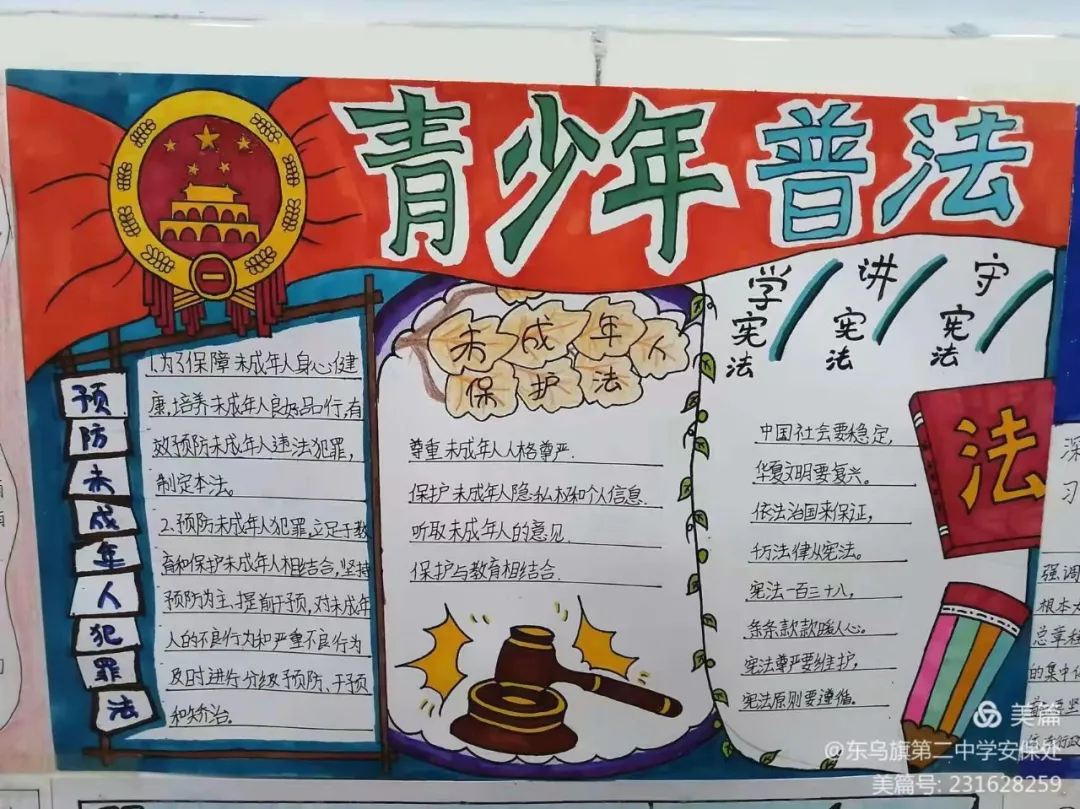 青少年普法
预防未成年人犯罪法
1.为了保障未成年人身心健
康,培养未成年人良好品行,有
效预防未成年人违法犯罪,
制定本法。
2.预防未成年人犯罪,立足于教
育和保护未成年人相结合,坚持
预防为主、提前干预,对未成年
人的不良行为和严重不良行为
及时进行分级预防、干预
和矫治。
未成年人
保护法
尊重未成年人人格尊严.
保护未成年人隐私权和个人信息.
听取未成年人的意见
保护与教育相结合.
学宪法
讲宪法
守宪法
中国社会要稳定,
华夏文明要复兴。
依法治国来保证,
千万法律从宪法。
宪法一百三十八,
条条款款暖人心。
宪法尊严要维护,
宪法原则要遵循。
法
深
习
强调
根本大
总章程
的集中体
美篇
@东乌旗第二中学安保处
美篇号: 231628259